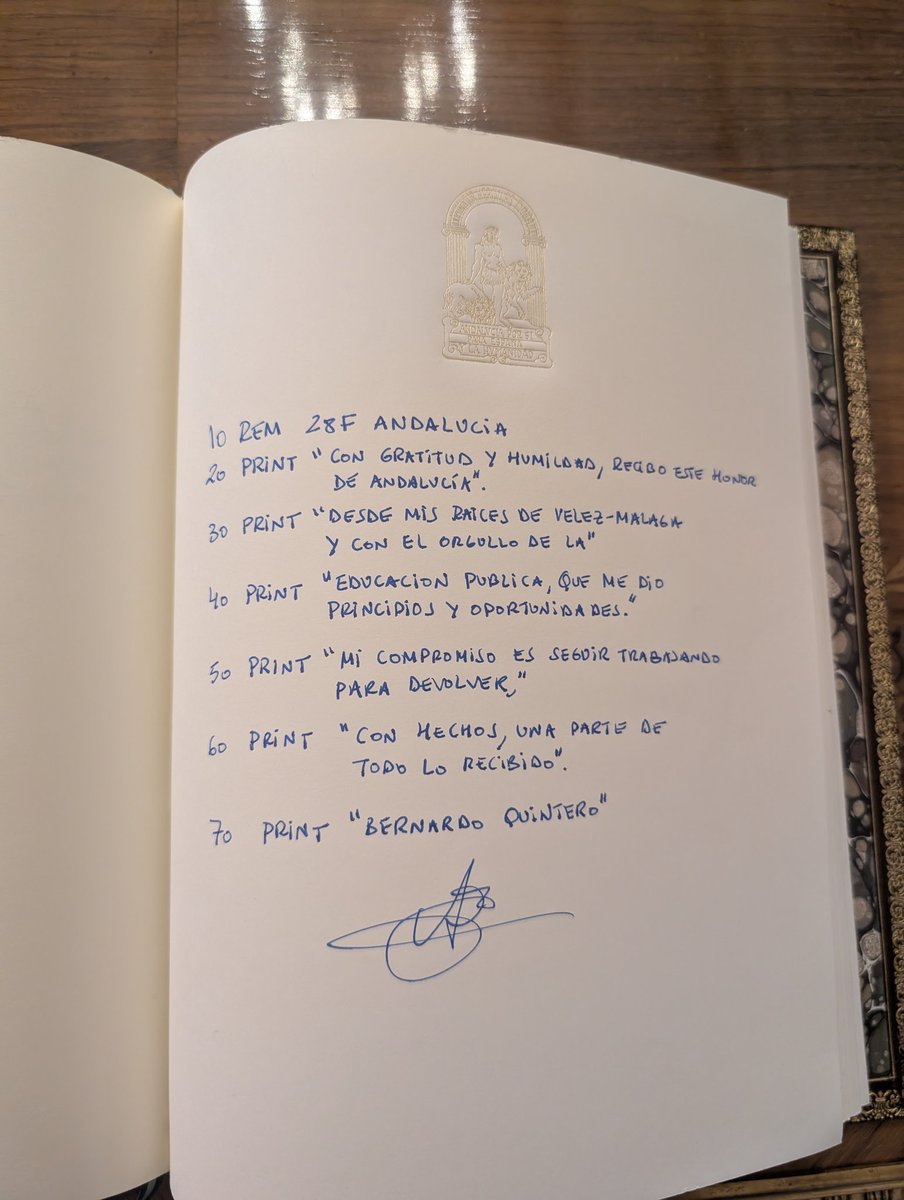 ANDALUCIA POR SI
PARA ESPAÑA
Y LA HUMANIDAD
10 REM 28F ANDALUCIA
20 PRINT "CON GRATITUD Y HUMILDAD, RECIBO ESTE HONOR
DE ANDALUCÍA".
30 PRINT "DESDE MIS RAICES DE VELEZ-MALAGA
Y CON EL ORGULLO DE LA"
40 PRINT "EDUCACION PUBLICA, QUE ME DIO
PRINCIPIOS Y OPORTUNIDADES."
50 PRINT "MI COMPROMISO ES SEGUIR TRABAJANDO
PARA DEVOLVER,"
60 PRINT "CON HECHOS, UNA PARTE DE
TODO LO RECIBIDO".
70 PRINT "BERNARDO QUINTERO"